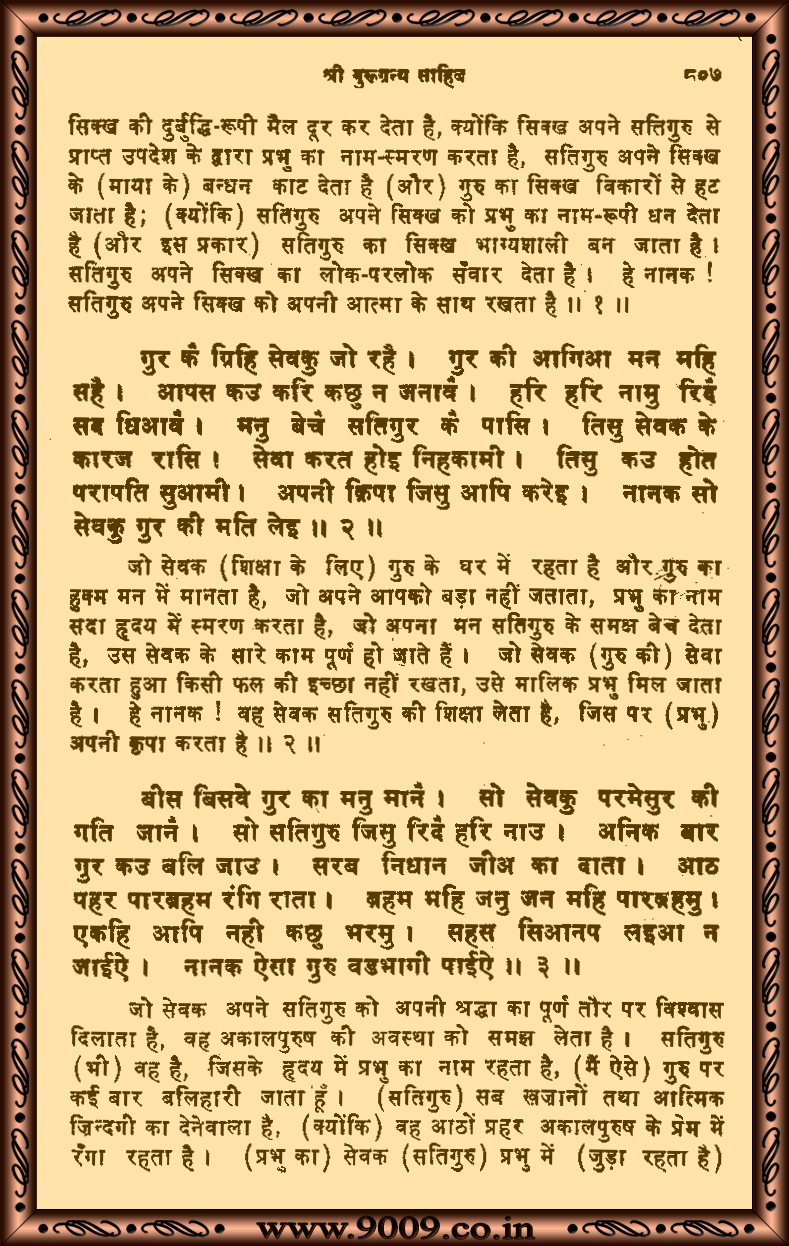 श्री गुरूग्रन्थ साहिब ८०७
सिक्ख की दुर्बुद्धि-रूपी मैल दूर कर देता है, क्योंकि सिक्ख अपने सतिगुरु से
प्राप्त उपदेश के द्वारा प्रभु का नाम-स्मरण करता है, सतिगुरु अपने सिक्ख
के (माया के) बन्धन काट देता है (और) गुरु का सिक्ख विकारों से हट
जाता है; (क्योंकि) सतिगुरु अपने सिक्ख को प्रभु का नाम-रूपी धन देता
है (और इस प्रकार) सतिगुरु का सिक्ख भाग्यशाली बन जाता है।
सतिगुरु अपने सिक्ख का लोक-परलोक सँवार देता है। हे नानक !
सतिगुरु अपने सिक्ख को अपनी आत्मा के साथ रखता है ॥ १ ॥
गुर कै ग्रिहि सेवकु जो रहै। गुर की आगिआ मन महि
सहै। आपस कउ करि कछु न जनावै। हरि हरि नामु रिदै
सद धिआवै। मनु बेचै सतिगुर कै पासि। तिसु सेवक के
कारज रासि। सेवा करत होइ निहकामी। तिसु कउ होत
परापति सुआमी। अपनी क्रिपा जिसु आपि करेइ। नानक सो
सेवकु गुर की मति लेइ ॥ २ ॥
जो सेवक (शिक्षा के लिए) गुरु के घर में रहता है और गुरु का
हुक्म मन में मानता है, जो अपने आपको बड़ा नहीं जताता, प्रभु का नाम
सदा हृदय में स्मरण करता है, जो अपना मन सतिगुरु के समक्ष बेच देता
है, उस सेवक के सारे काम पूर्ण हो जाते हैं। जो सेवक (गुरु की) सेवा
करता हुआ किसी फल की इच्छा नहीं रखता, उसे मालिक प्रभु मिल जाता
है। हे नानक ! वह सेवक सतिगुरु की शिक्षा लेता है, जिस पर (प्रभु)
अपनी कृपा करता है ॥ २ ॥
बीस बिसवे गुर का मनु मानै। सो सेवकु परमेसुर की
गति जानै। सो सतिगुरु जिसु रिदै हरि नाउ। अनिक बार
गुर कउ बलि जाउ। सरब निधान जीअ का दाता। आठ
पहर पारब्रहम रंगि राता। ब्रहम महि जनु जन महि पारब्रहमु।
एकहि आपि नही कछु भरमु। सहस सिआनप लइआ न
जाईऐ। नानक ऐसा गुरु वडभागी पाईऐ ॥ ३ ॥
जो सेवक अपने सतिगुरु को अपनी श्रद्धा का पूर्ण तौर पर विश्वास
दिलाता है, वह अकालपुरुष की अवस्था को समझ लेता है। सतिगुरु
(भी) वह है, जिसके हृदय में प्रभु का नाम रहता है, (मैं ऐसे) गुरु पर
कई बार बलिहारी जाता हूँ। (सतिगुरु) सब खज़ानों तथा आत्मिक
ज़िन्दगी का देनेवाला है, (क्योंकि) वह आठों प्रहर अकालपुरुष के प्रेम में
रँगा रहता है। (प्रभु का) सेवक (सतिगुरु) प्रभु में (जुड़ा रहता है)
www.9009.co.in